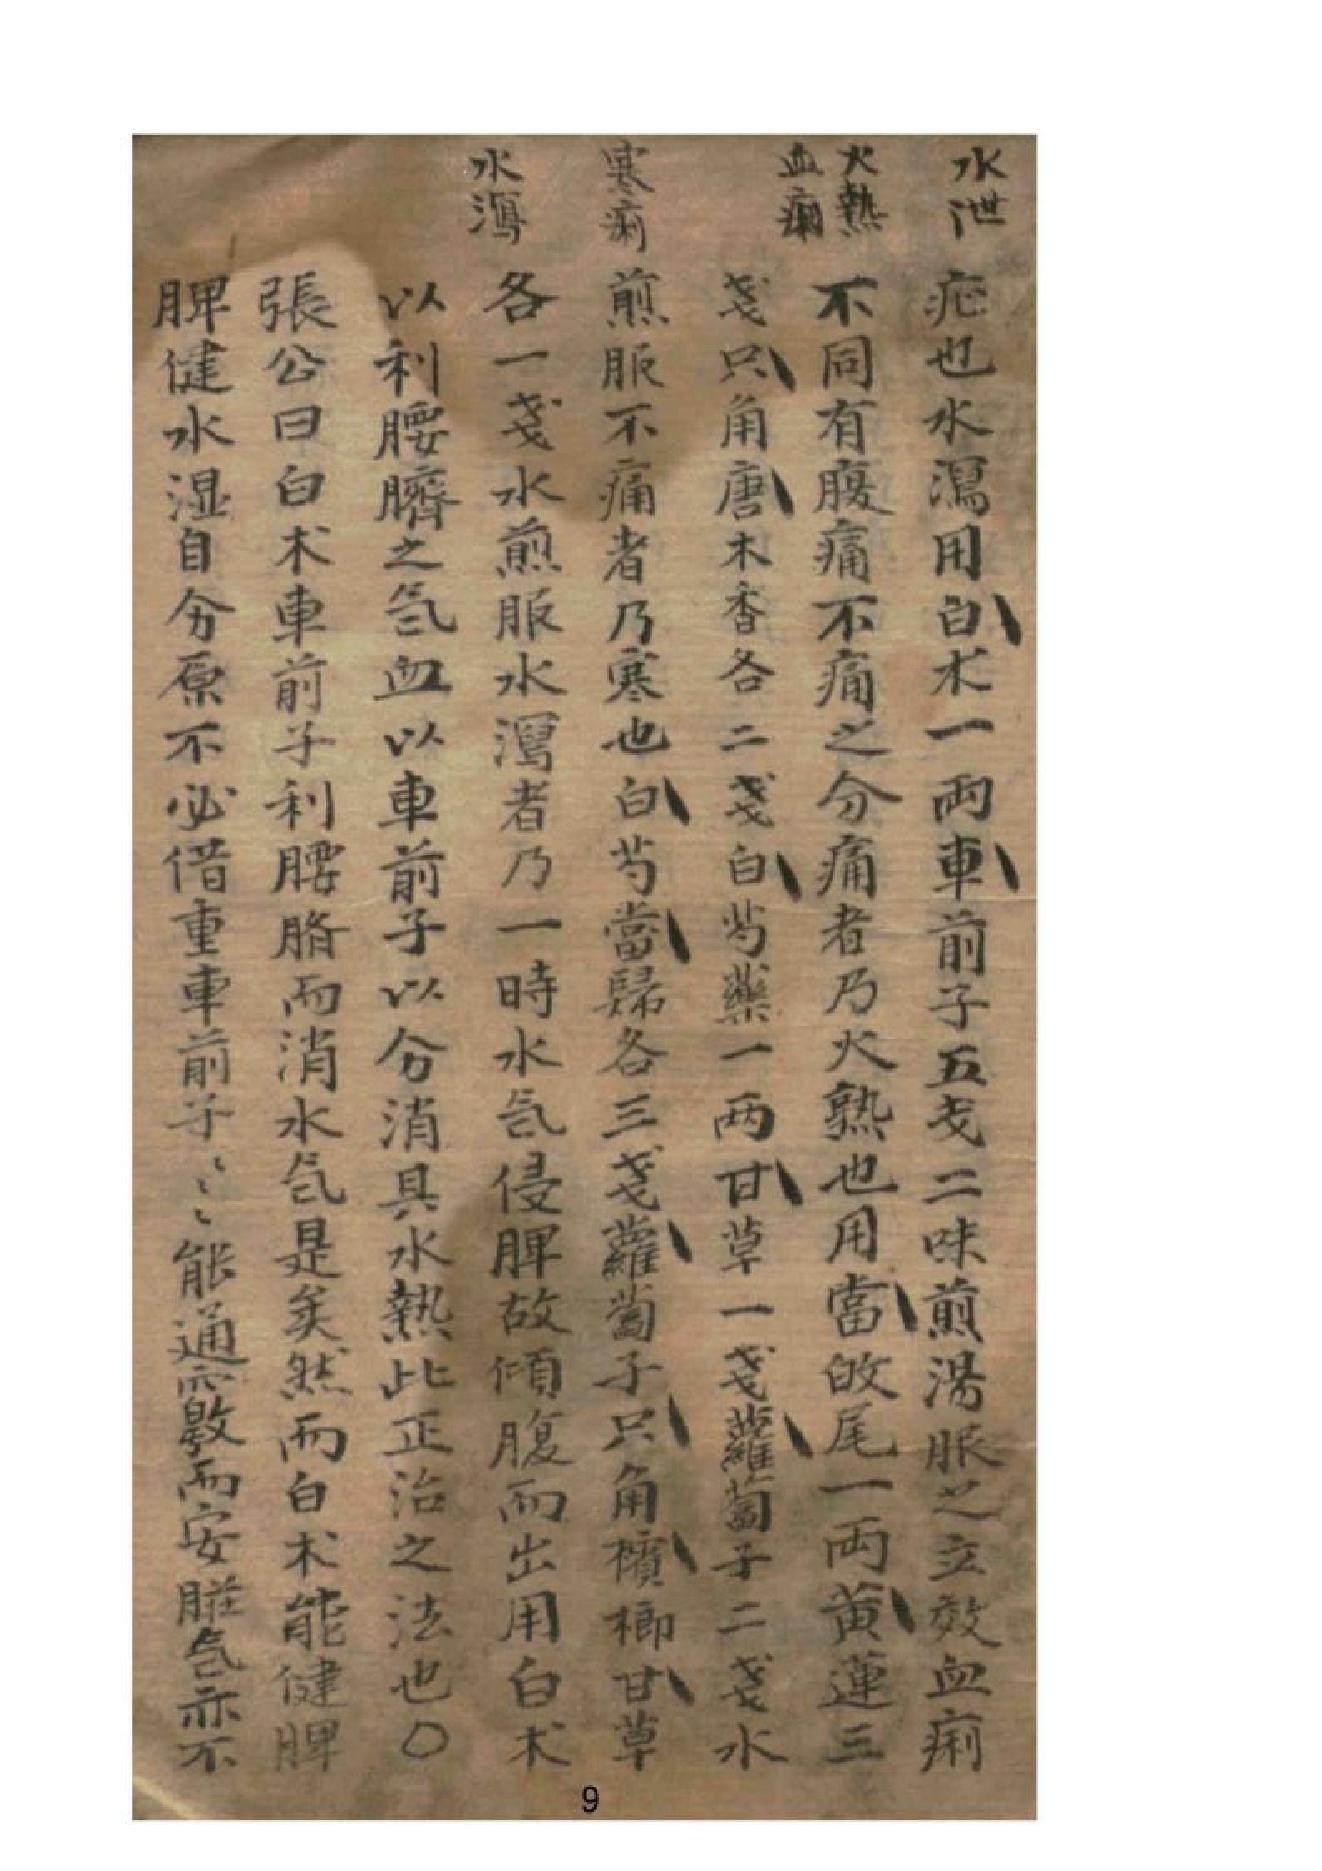 水泄
火熱
血痢
寒痢
水瀉
疟也水瀉用白术一両車前子五戔二味煎湯服之立效血痢
不同有腹痛不痛之分痛者乃火熱也用當皈尾一両黄蓮三
戔只角唐木香各二戔白芍藥一両甘草一戔蘿蔔子二戔水
煎服不痛者乃寒也白芍當歸各三戔蘿蔔子只角檳榔甘草
各一戔水煎服水瀉者乃一時水氣侵脾故傾腹而出用白术
以利腰臍之氣血以車前子以分消其水熱此正治之法也〇
張公曰白术車前子利腰脐而消水気是矣然而白术能健脾
脾健水湿自分原不必借重車前子〻〻能通而安脏気亦不
9